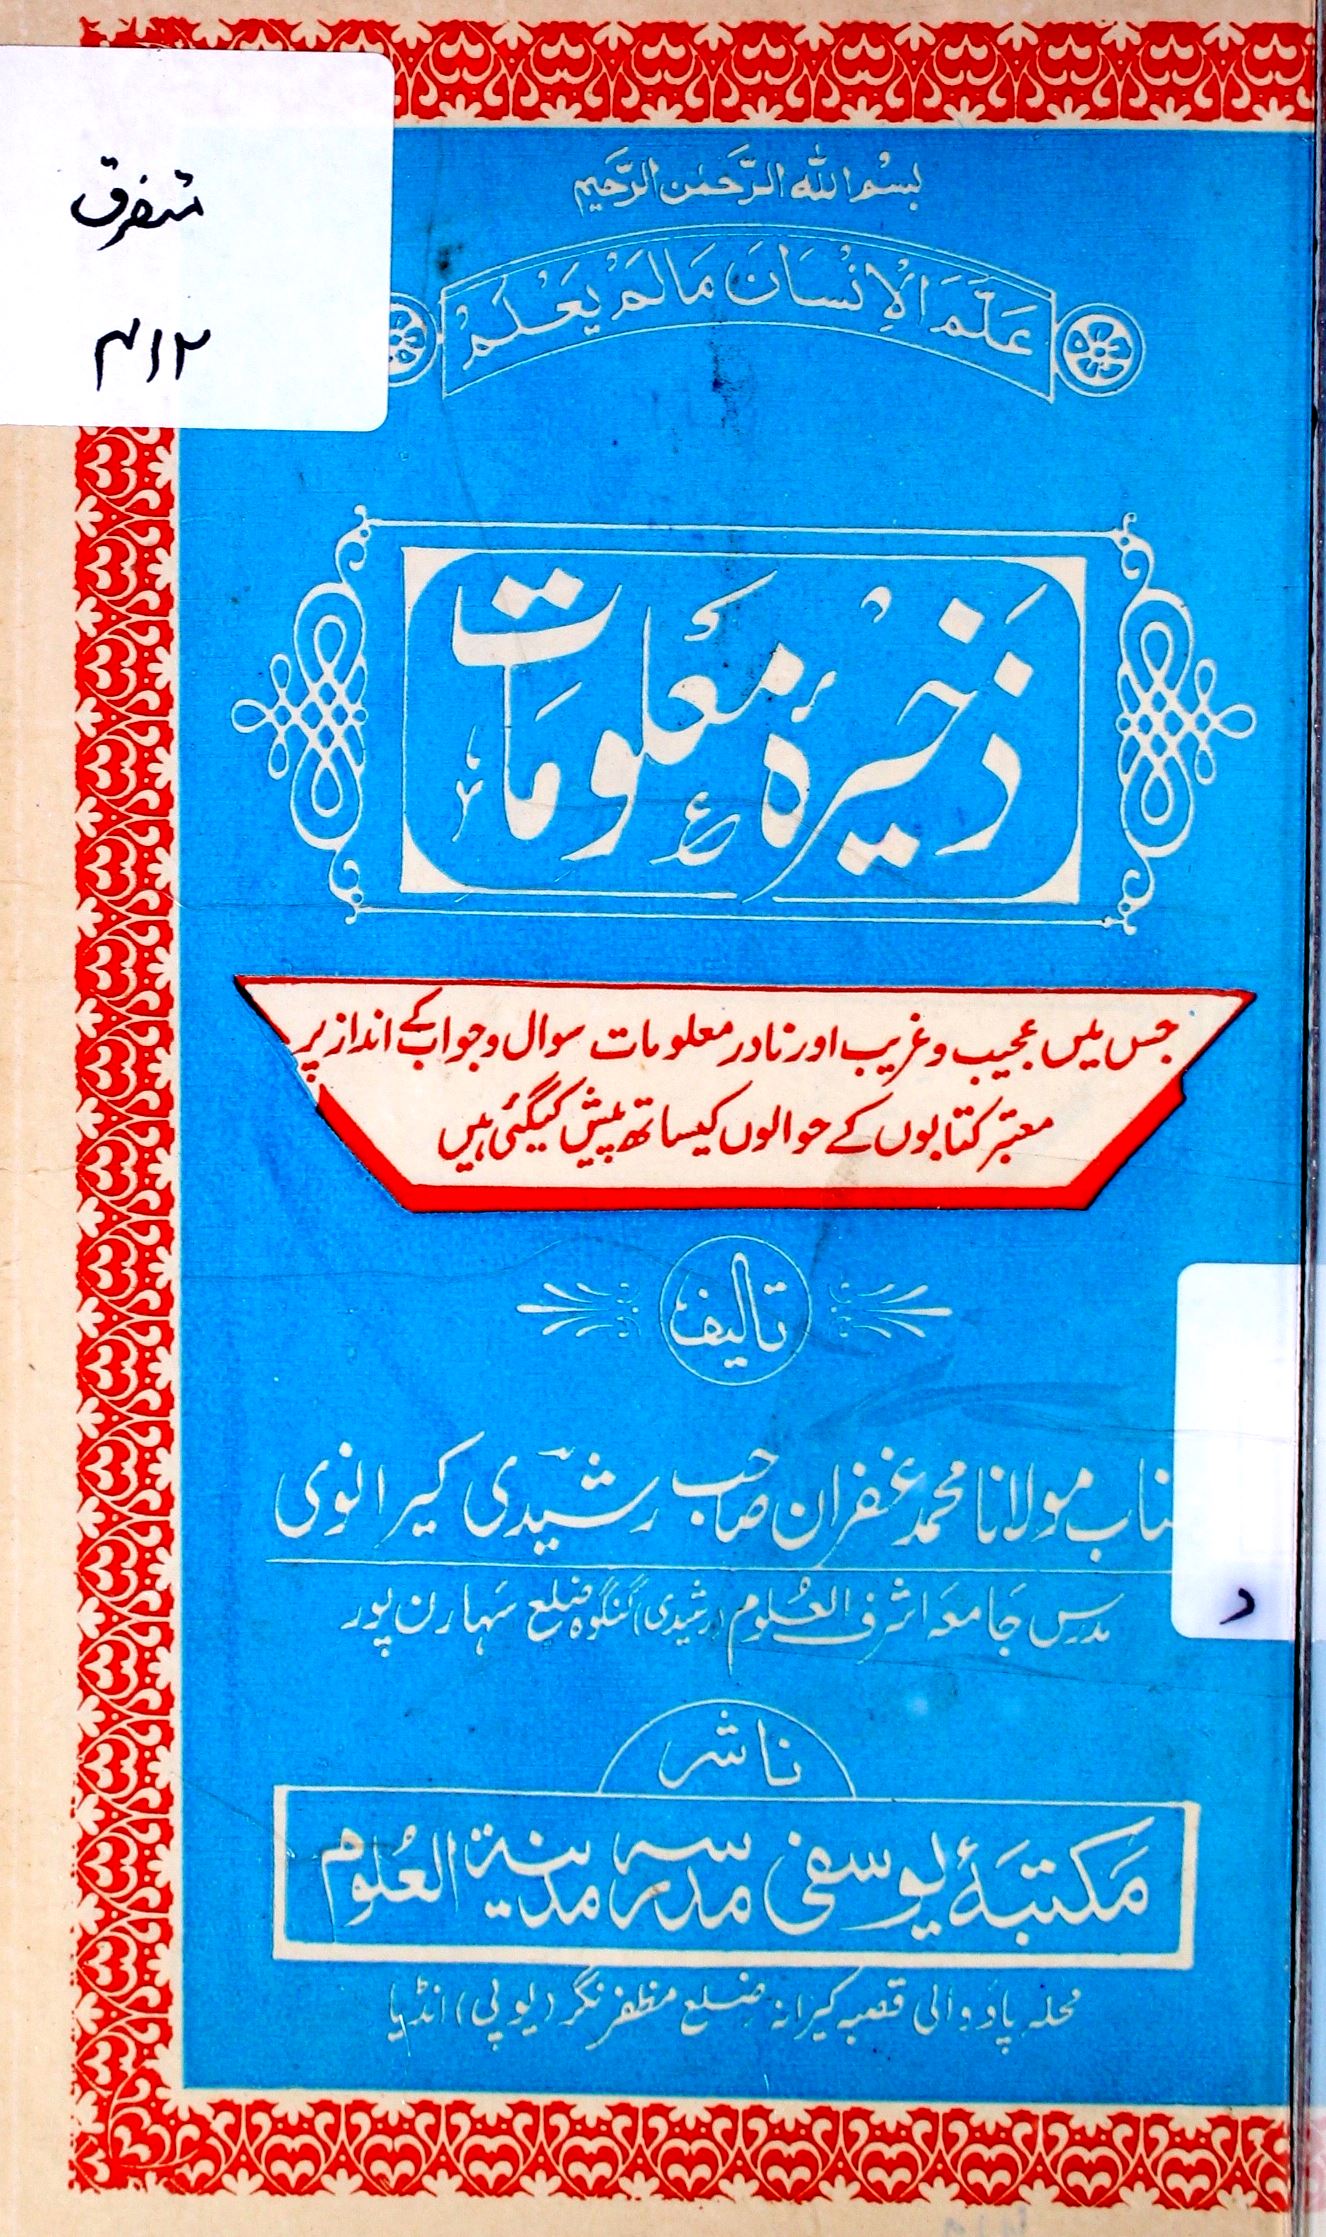 متفرق
۴۱۲
بسم اللہ الرَّحمٰن الرَّحیم
عَلَّمَ الْاِنْسَانَ مَالَمْ یَعْلَمْ
ذخیرۂ معلومات
جس میں عجیب و غریب اور نادر معلومات سوال و جواب کے انداز پر
معتبر کتابوں کے حوالوں کیساتھ پیش کیگئی ہیں
تالیف
ناب مولانا محمد غفران صاحب رشیدی کیرانوی
مدرس جامعہ اشرف العلوم (رشیدی) گنگوہ ضلع سہارن پور
د
ناشر
مکتبۂ یوسفی مدرسہ مدینۃ العلوم
محلہ پاووالی قصبہ کیرانہ ضلع مظفر نگر (یوپی) انڈیا